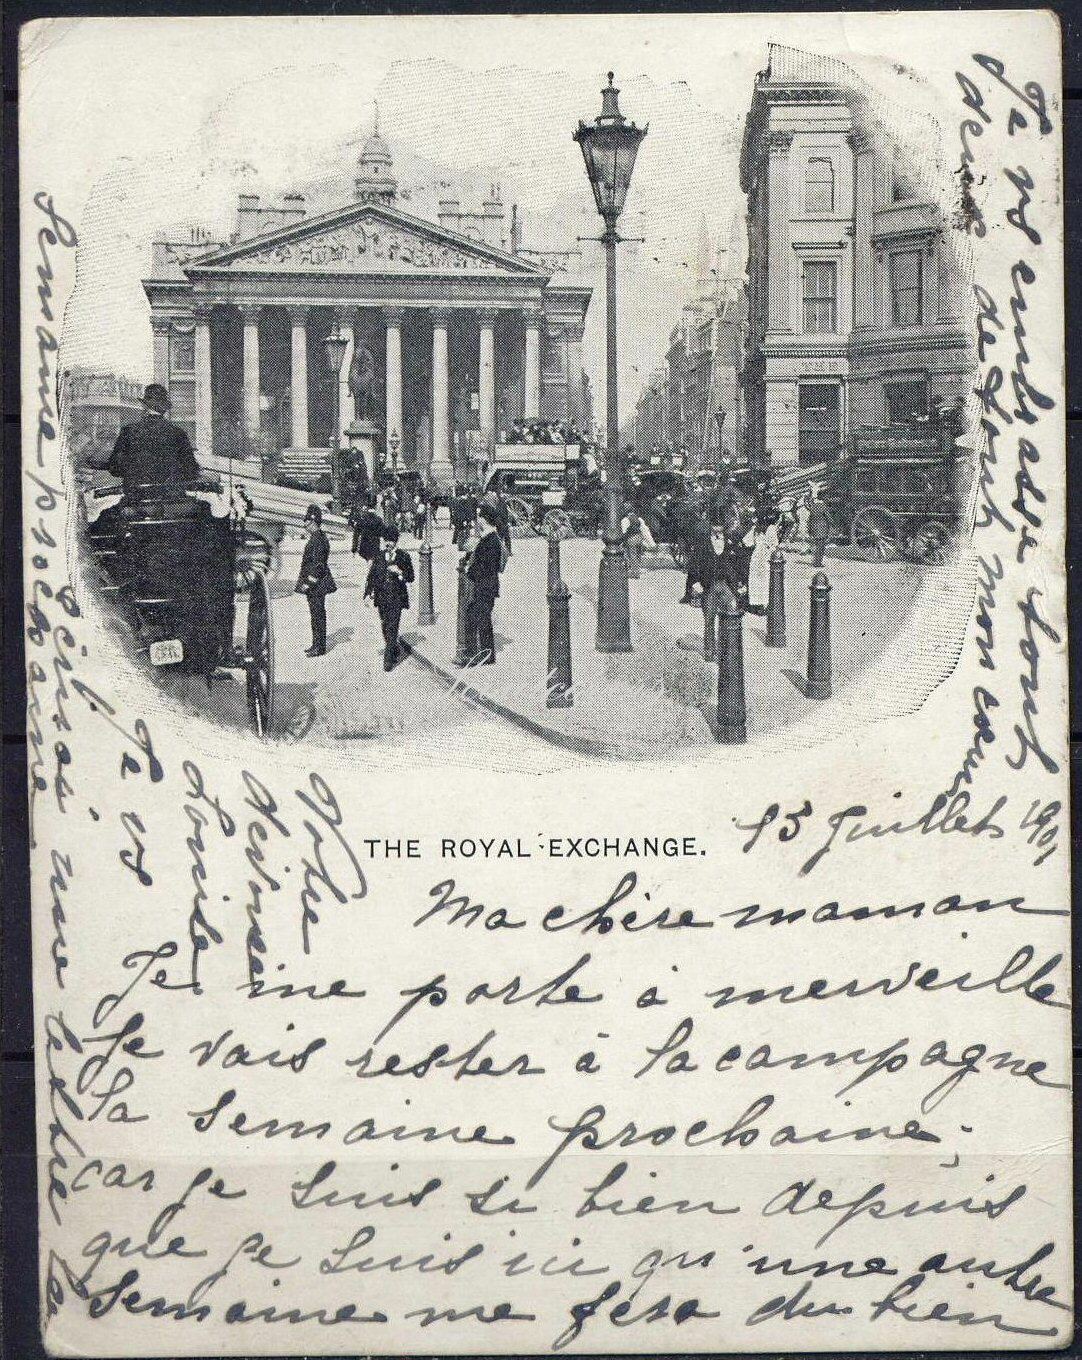 THE ROYAL EXCHANGE.
15 Juillet 1901
Ma chère maman
Je me porte à merveille
Je vais rester à la campagne
la semaine prochaine;
car je suis si bien depuis
que je suis ici qu'une autre
semaine me fera du bien
Ecrivez moi une lettre la
semaine prochaine
Je vs embrasse tous
deux de tout mon cœur
Je vs
Louise
Votre